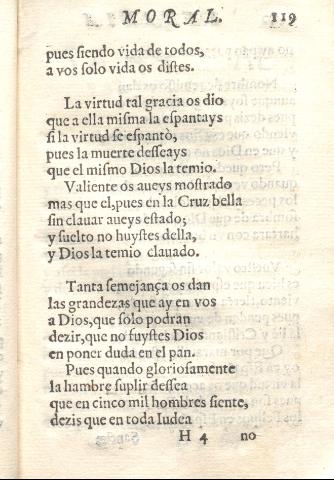 MORAL. 119
pues siendo vida de todos,
a vos solo vida os distes.
La virtud tal gracia os dio
que a ella misma la espantays
si la virtud se espantò,
pues la muerte desseays
que el mismo Dios la temio.
Valiente os aueys mostrado
mas que el, pues en la Cruz bella
sin clauar aueys estado;
y suelto no huystes della,
y Dios la temio clauado.
Tanta semejança os dan
las grandezas que ay en vos
a Dios, que solo podran
dezir, que no fuystes Dios
en poner duda en el pan.
Pues quando gloriosamente
la hambre suplir dessea
que en cinco mil hombres siente,
dezis que en toda Iudea
H 4 no